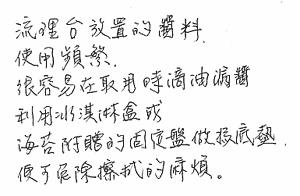 流理台放置的醬料,
使用頻繁.
很容易在取用時滴油漏醬
利用冰淇淋盒或
海苔附贈的固定盤做接底墊,
便可免除擦拭的麻煩。